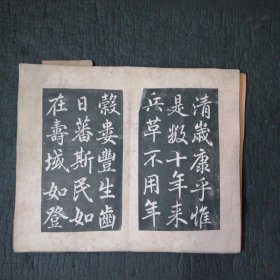 清歲康乎惟
是数十年来
兵草不用年
穀婁豐生齒
日蕃斯民如
在壽域如登